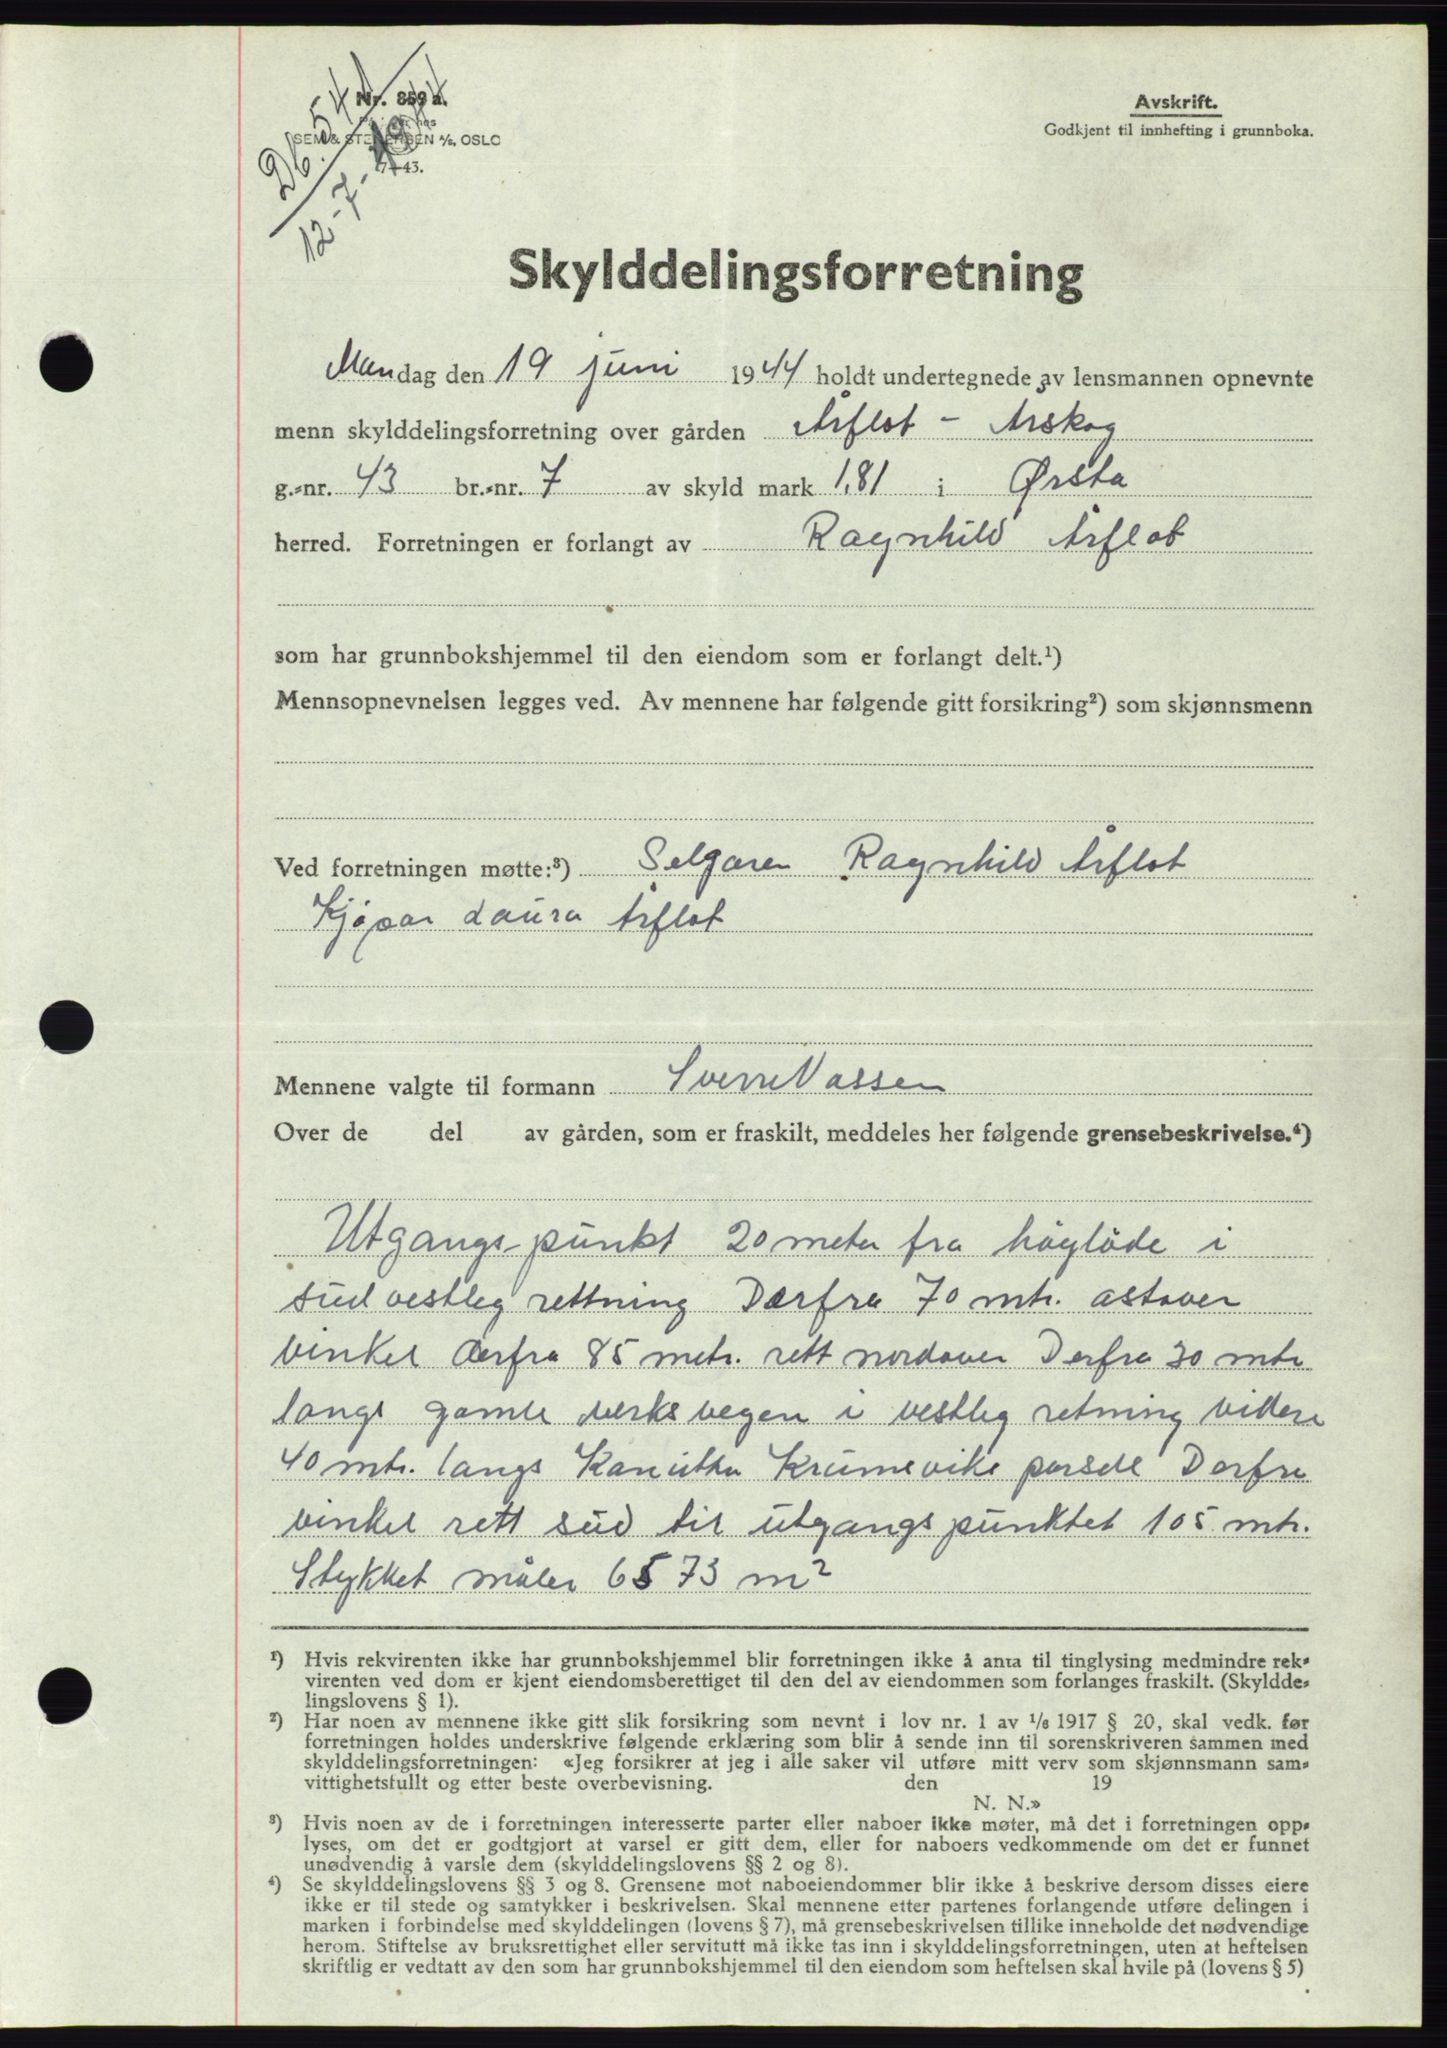 Db. 541
12-7-1944
Nr. 859 a.
SEM & STENERSEN A/S, OSLO
7-43.
Avskrift.
Godkjent til innhefting i grunnboka.
Skylddelingsforretning
Mandag den 19 juni 1944 holdt undertegnede av lensmannen opnevnte
menn skylddelingsforretning over gården Årflot - Årskog
g.-nr. 43 br.-nr. 7 av skyld mark 1,81 i Ørsta
herred. Forretningen er forlangt av Ragnhild Årflot
som har grunnbokshjemmel til den eiendom som er forlangt delt.¹)
Mennsopnevnelsen legges ved. Av mennene har følgende gitt forsikring²) som skjønnsmenn
Ved forretningen møtte:³) Selgaren Ragnhild Årflot
Kjøpar Laura Årflot
Mennene valgte til formann Sverre Nassen
Over de del av gården, som er fraskilt, meddeles her følgende grensebeskrivelse.⁴)
Utgangs-punkt 20 meter fra höylöde i
sudvestleg rettning Derfra 70 mtr. astover
vinkel derfra 85 metr. rett nordover Derfra 30 mtr
langs gamle verksvegen i vestleg retning videre
40 mtr. langs Kanutha Krumsvike parsell Derfra
vinkel rett sud til utgangspunktet 105 mtr.
Stykket måler 6573 m²
¹) Hvis rekvirenten ikke har grunnbokshjemmel blir forretningen ikke å anta til tinglysing medmindre rek-
virenten ved dom er kjent eiendomsberettiget til den del av eiendommen som forlanges fraskilt. (Skyldde-
lingslovens § 1).
²) Har noen av mennene ikke gitt slik forsikring som nevnt i lov nr. 1 av 1/6 1917 § 20, skal vedk. før
forretningen holdes underskrive følgende erklæring som blir å sende inn til sorenskriveren sammen med
skylddelingsforretningen: «Jeg forsikrer at jeg i alle saker vil utføre mitt verv som skjønnsmann sam-
vittighetsfullt og etter beste overbevisning. den 19
N. N.»
³) Hvis noen av de i forretningen interesserte parter eller naboer ikke møter, må det i forretningen opp-
lyses, om det er godtgjort at varsel er gitt dem, eller for naboers vedkommende om det er funnet
unødvendig å varsle dem (skylddelingslovens §§ 2 og 8).
⁴) Se skylddelingslovens §§ 3 og 8. Grensene mot naboeiendommer blir ikke å beskrive dersom disses eiere
ikke er til stede og samtykker i beskrivelsen. Skal mennene etter partenes forlangende utføre delingen i
marken i forbindelse med skylddelingen (lovens § 7), må grensebeskrivelsen tillike inneholde det nødvendige
herom. Stiftelse av bruksrettighet eller servitutt må ikke tas inn i skylddelingsforretningen, uten at heftelsen
skriftlig er vedtatt av den som har grunnbokshjemmel til den eiendom som heftelsen skal hvile på (lovens § 5)